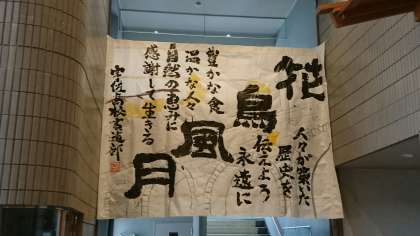 花鳥風月
人々が築いた
歴史を
伝えよう
永遠に
豊かな食
温かな人々
自然の恵みに
感謝して生きる
中佐長松高書道部